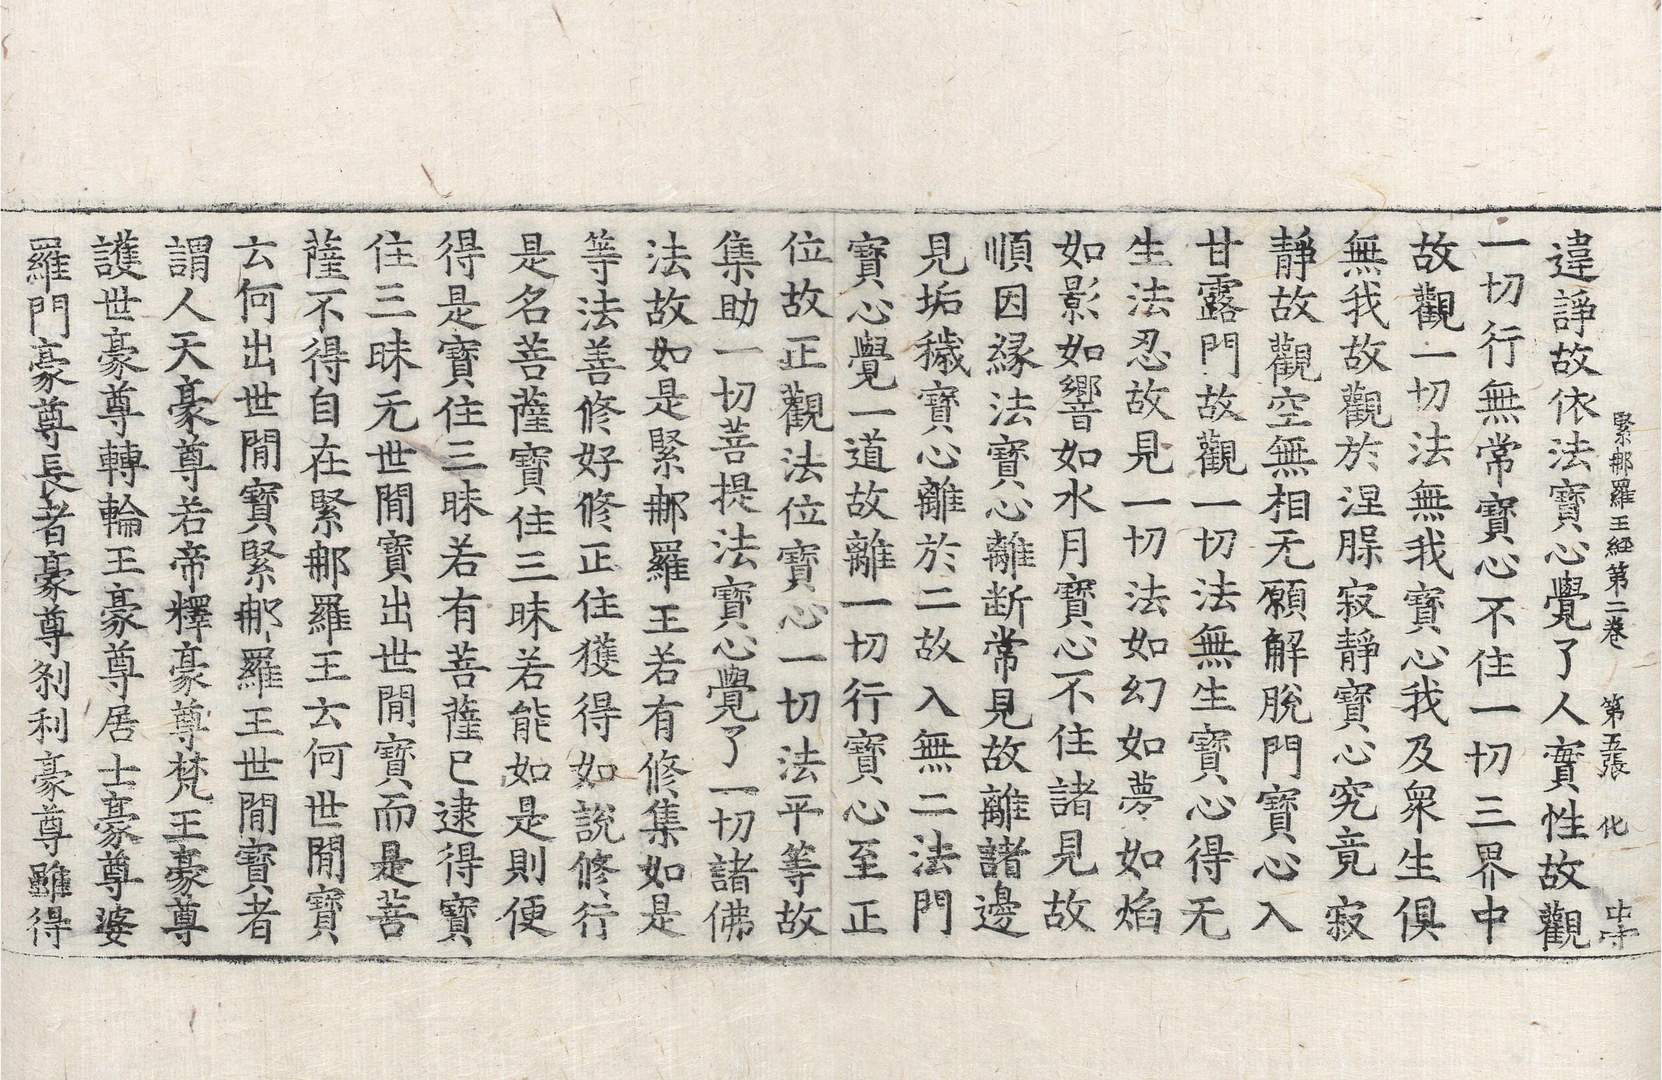 緊那羅王經第二卷 第五張 化
違諍故依法寶心覺了人實性故觀
一切行無常寶心不住一切三界中
故觀一切法無我寶心我及衆生俱
無我故觀於涅槃寂靜寶心究竟寂
靜故觀空無相无願解脫門寶心入
甘露門故觀一切法無生寶心得无
生法忍故見一切法如幻如夢如焰
如影如響如水月寶心不住諸見故
順因緣法寶心離断常見故離諸邊
見垢穢寶心離於二故入無二法門
寶心覺一道故離一切行寶心至正
位故正觀法位寶心一切法平等故
集助一切菩提法寶心覺了一切諸佛
法故如是緊那羅王若有修集如是
等法善修好修正住獲得如說修行
是名菩薩寶住三昧若能如是則便
得是寶住三昧若有菩薩已逮得寶
住三昧无世閒寶出世閒寶而是菩
薩不得自在緊那羅王云何世閒寶
云何出世閒寶緊那羅王世閒寶者
謂人天豪尊若帝釋豪尊梵王豪尊
護世豪尊轉輪王豪尊居士豪尊婆
羅門豪尊長者豪尊刹利豪尊雖得